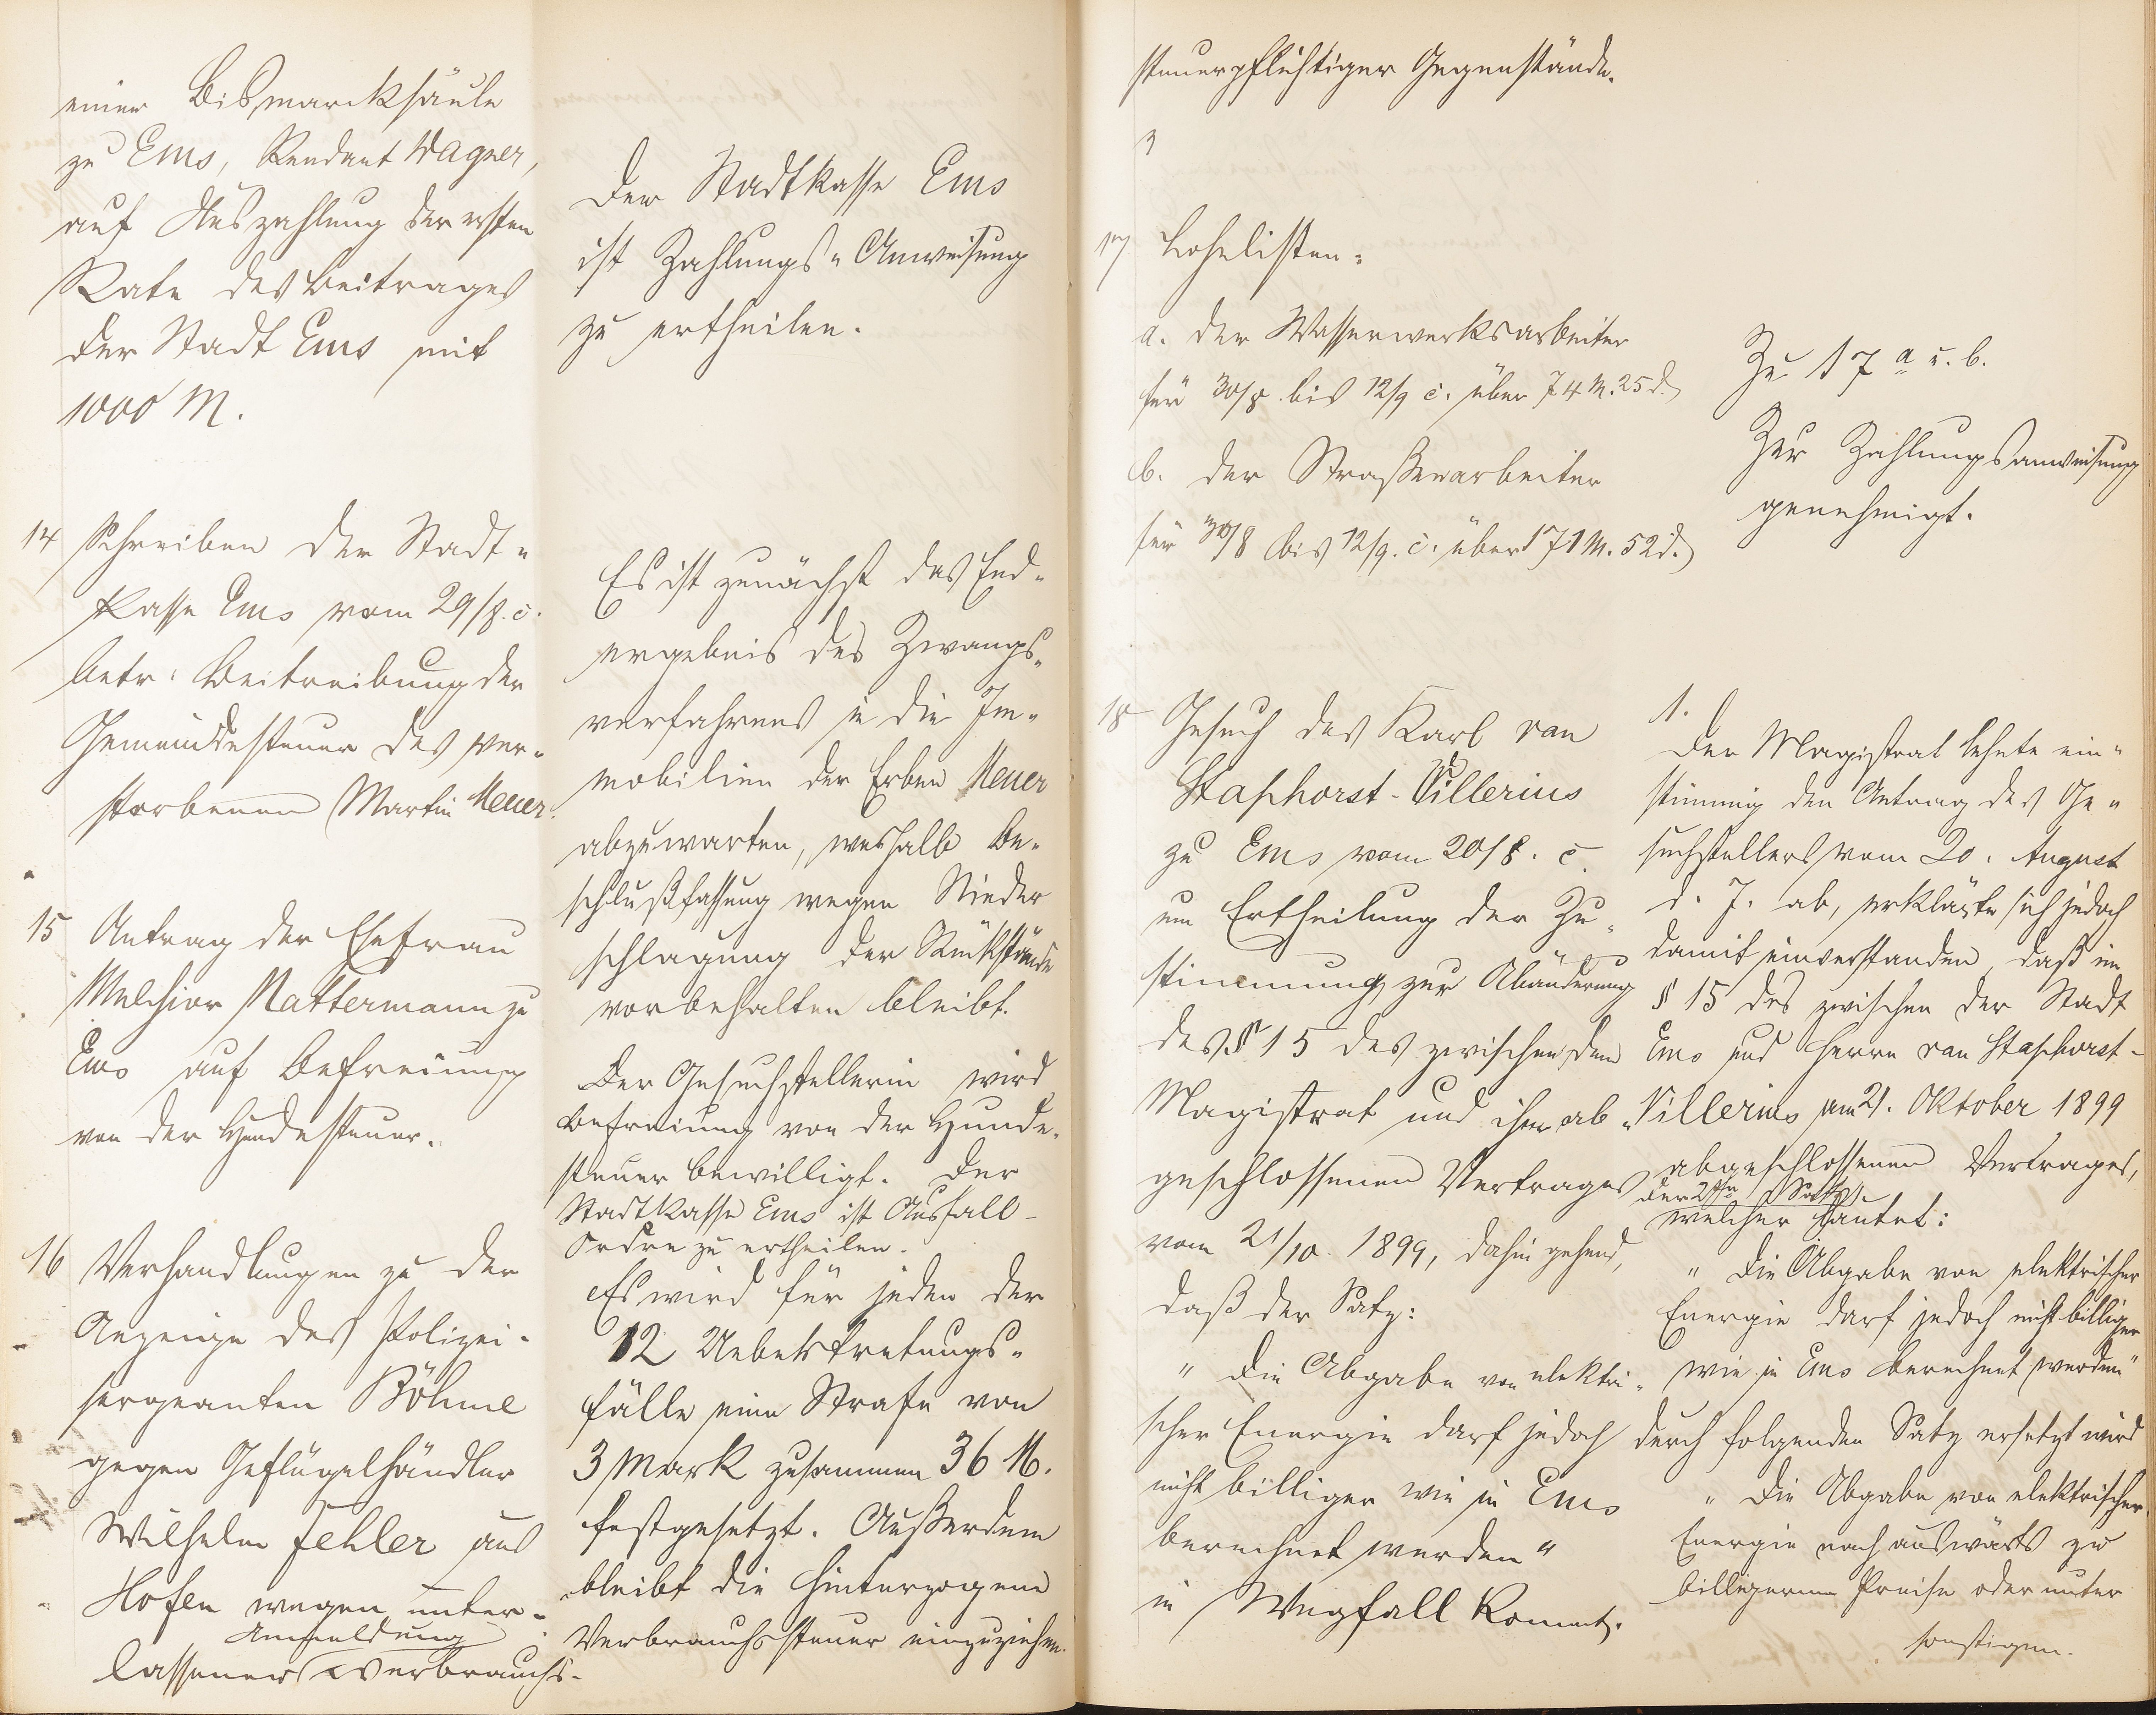 einer Bismarcksäule
zu Ems, Rendant Wagner,
auf Auszahlung der ersten
Rate des Beitrages
der Stadt Ems mit
1000 M.
Der Stadtkasse Ems
ist Zahlungs-Anweisung
zu ertheilen.
14 Schreiben der Stadt-
kasse Ems vom 29/8. c.
betr: Beitreibung der
Gemeindesteuer des ver-
storbenen Martin Meuer.
Es ist zunächst das End-
ergebnis des Zwangs-
verfahrens in die Im-
mobilien der Erben Meuer
abzuwarten, weshalb Be-
schlußfassung wegen Nieder
schlagung der Rückstände
vorbehalten bleibt.
15 Antrag der Ehefrau
Melchior Mattermann zu
Ems auf Befreiung
von der Hundesteuer.
Der Gesuchstellerin wird
Befreiung von der Hunde-
steuer bewilligt. Der
Stadtkasse Ems ist Ausfall-
Ordre zu ertheilen.
16 Verhandlungen zu der
Anzeige des Polizei-
sergeanten Böhme
gegen Geflügelhändler
Wilhelm Fehler aus
Hofen wegen unter-
Anmeldung
lassener Verbrauchs-
Es wird für jeden der
12 Uebertretungs-
fälle eine Strafe von
3 Mark zusammen 36 M.
festgesetzt. Außerdem
bleibt die hinterzogene
Verbrauchssteuer einzuziehen.
steuerpflichtiger Gegenstände.
17 Lohnlisten:
a. der Wasserwerksarbeiter
für 30/8. bis 12/9 c. über 74 M. 25 d.
b. der Straßenarbeiter
für 30/8 bis 12/9. c. über 171 M. 52 d.
Zu 17 a u. b.
Zur Zahlungsanweisung
genehmigt.
18 Gesuch des Karl van
Staphorst-Villerius
zu Ems vom 20/8. c.
um Ertheilung der Zu-
stimmung zur Abänderung
des § 15 des zwischen dem
Magistrat und ihm ab-
geschlossenen Vertrages
vom 21/10. 1899, dahin gehend,
daß der Satz:
" Die Abgabe von elektri-
scher Energie darf jedoch
nicht billiger wie in Ems
berechnet werden"
in Wegfall kommt.
1.
Der Magistrat lehnte ein-
stimmig den Antrag des Ge-
suchstellers vom 20. August
d. J. ab, erklärte sich jedoch
damit einverstanden, daß im
§ 15 des zwischen der Stadt
Ems und Herrn van Staphorst-
Villerius am 21. Oktober 1899
abgeschlossenen Vertrages,
der 2te Satz
welcher lautet:
" Die Abgabe von elektrischer
Energie darf jedoch nicht billiger
wie in Ems berechnet werden"
durch folgenden Satz ersetzt wird
" Die Abgabe von elektrischer
Energie nach auswärts zu
billigerem Preise oder unter
sonstigen